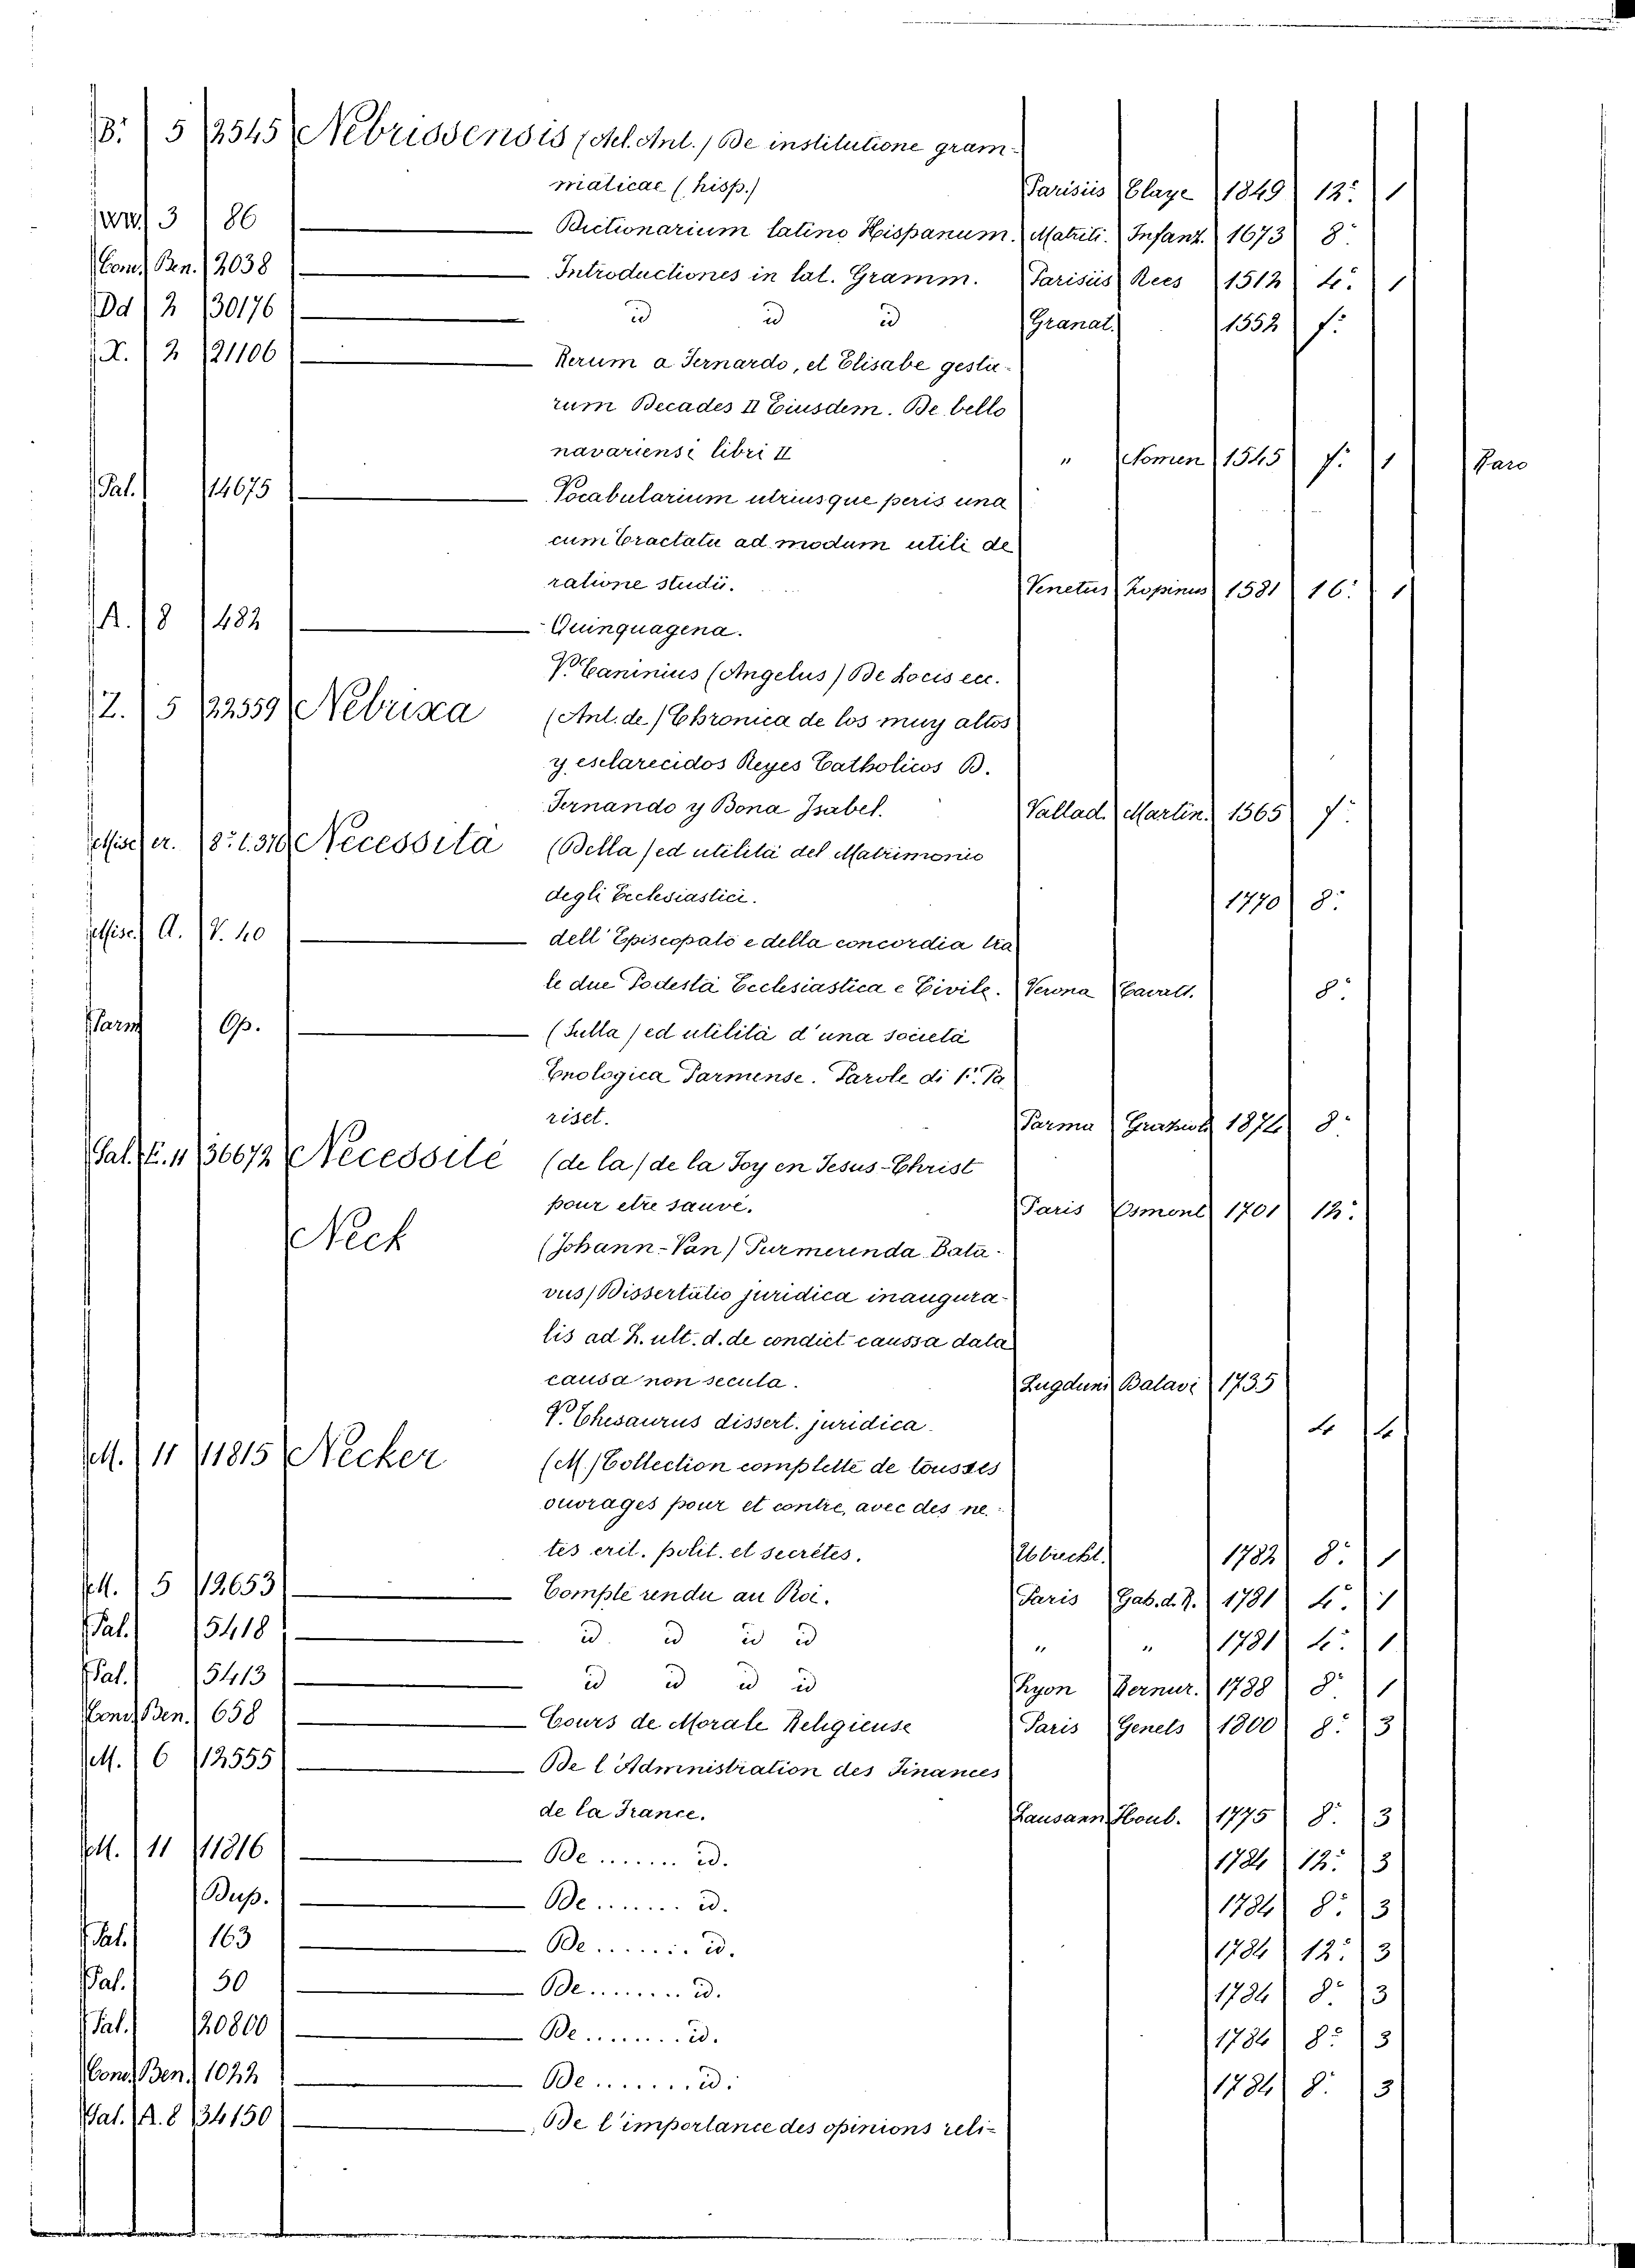 B. 5 2545 Nebrissensis (Ael. Ant.) De institutione gram-
maticae (hisp.) Parisiis Claye 1849 12º 1
3 86 Dictionarium latino Hispanum. Matriti. Infanz. 1673 8º
Com. Ben. 2038 Introductiones in lat. Gramm. Parisiis Rees 1512 4º 1
Dd 2 30176 id id id Granat. 1552 f.
X. 2 21106 Rerum a Fernardo, et Elisabe gestu-
rum Decades II Eiusdem. De bello
navariensi libri II " Nomen 1545 f. 1 Raro
Pal. 14675 Vocabularium utriusque peris una
cum tractatu ad modum utili de
ratione studii. Venetus Zopinus 1581 16º 1
A. 8 482 Quinquagena.
V. Caninius (Angelus) De Locis ecc.
Z. 5 22559 Nebrixa (Ant. de) Chronica de los muy altos
y esclarecidos Reyes Catholicos D.
Fernando y Dona Isabel. Vallad. Martin. 1565 f.
Misc. er. 8º 1.316 Necessita (Della) ed utilità del Matrimonio
degli Ecclesiastici. 1770 8º
Misc. A. V. 40 dell' Episcopato e della concordia tra
le due Podestà Ecclesiastica e Civile. Verona Cavall. 8º
Parm Op. (Sulla) ed utilità d'una società
Enologica Parmense. Parole di F. Pa
riset. Parma Grazioli 1874 8º
Pal. E. 11 36672 Necessité (de la) de la Foy en Jesus-Christ
pour etre sauvé. Paris Osmont 1701 12º
Neck (Johann-Van) Purmerenda Bata-
vus) Dissertatio juridica inaugura-
lis ad L. ult. d. de condict caussa data
causa non secuta. Lugduni Batavi 1735
V. Thesaurus dissert. juridica. 4 4
M. 11 11815 Necker (M.) Collection complette de tousses
ouvrages pour et contre, avec des no-
tes crit. polit. et secrètes. Utrecht. 1782 8º 1
M. 5 12653 Compte rendu au Roi. Paris Gab. d. R. 1781 4º 1
Pal. 5418 id id id id " " 1781 4º 1
Pal. 5413 id id id id Lyon Bernur. 1788 8º 1
Com. Ben. 658 Cours de Morale Religieuse Paris Genets 1800 8º 3
M. 6 12555 De l'Administration des Finances
de la France. Lausann. Houb. 1775 8º 3
M. 11 11816 De ....... id. 1784 12º 3
Dup. De ....... id. 1784 8º 3
Pal. 163 De ....... id. 1784 12º 3
Pal. 50 De ....... id. 1784 8º 3
Pal. 20800 De ....... id. 1784 8º 3
Com. Ben. 1022 De ....... id. 1784 8º 3
Pal. A. 8 34150 De l'importance des opinions reli-